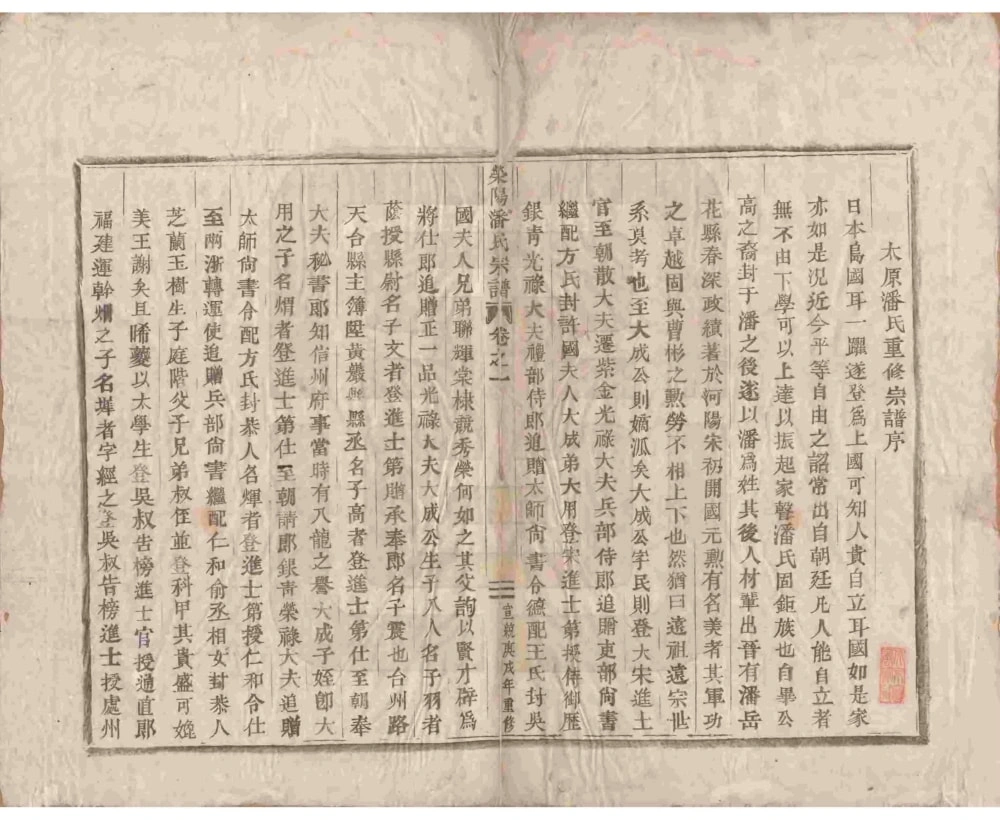 太原潘氏重修宗譜序
日本島國耳一躍遂登爲上國可知人貴自立耳國如是家
亦如是況近今平等自由之詔常出自朝廷凡人能自立者
無不由下學可以上達以振起家聲潘氏固鉅族也自畢公
高之裔封于潘之後遂以潘爲姓其後人材輩出晉有潘岳
花縣春深政績著於河陽宋初開國元勲有名美者其軍功
之卓越固與曹彬之勲勞不相上下也然猶曰遠祖遠宗世
系莫考也至大成公則嫡派矣大成公字民則登大宋進士
官至朝散大夫遷紫金光祿大夫兵部侍郎追贈吏部尚書
繼配方氏封許國夫人大成弟大用登宋進士第授侍御歷
銀青光祿大夫禮部侍郎追贈太師尚書令德配王氏封吳
滎陽潘氏宗譜 卷之一 三 宣統庚戌年重修
國夫人兄弟聯輝棠棣競秀榮何如之其父詢以賢才辟爲
將仕郎追贈正一品光祿大夫大成公生子八人名子羽者
蔭授縣尉名子文者登進士第贈承奉郎名子震也台州路
天台縣主簿陞黃巖縣縣丞名子高者登進士第仕至朝奉
大夫秘書郎知信州府事當時有八龍之譽大成子姪卽大
用之子名熠者登進士第仕至朝請郎銀青榮祿大夫追贈
太師尚書令配方氏封恭人名煇者登進士第授仁和令仕
至兩浙轉運使追贈兵部尚書繼配仁和俞丞相女封恭人
芝蘭玉樹生子庭階父子兄弟叔侄並登科甲其貴盛可媲
美王謝矣且晞夔以太學生登吳叔告榜進士官授通直郎
福建運幹熠之子名墀者字經之登吳叔告榜進士授處州